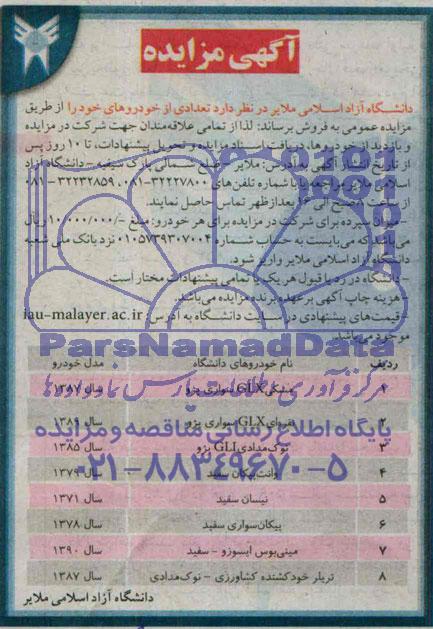 آگهی مزایده
دانشگاه آزاد اسلامی ملایر در نظر دارد تعدادی از خودروهای خود را از طریق
مزایده عمومی به فروش برساند: لذا از تمامی علاقه‌مندان جهت شرکت در مزایده
و بازدید از خودروها، دریافت اسناد مزایده و تحویل پیشنهادات، تا ۱۰ روز پس
از تاریخ انتشار آگهی به آدرس: ملایر - ضلع شمالی پارک سیفیه - دانشگاه آزاد
اسلامی ملایر مراجعه یا با شماره تلفن‌های ۳۲۲۲۷۸۰۰-۰۸۱، ۳۲۲۳۲۸۵۹-۰۸۱
از ساعت ۸ صبح الی ۱۶ بعدازظهر تماس حاصل نمایند.
سپرده برای شرکت در مزایده برای هر خودرو: مبلغ -/۱۰،۰۰۰/۰۰۰ ریال
می‌باشد که می‌بایست به حساب شماره ۰۱۰۵۷۳۹۳۰۷۰۰۴ نزد بانک ملی شعبه
دانشگاه آزاد اسلامی ملایر واریز شود.
دانشگاه در رد یا قبول هر یک یا تمامی پیشنهادات مختار است.
هزینه چاپ آگهی بر عهده برنده مزایده می‌باشد.
قیمت‌های پیشنهادی در سایت دانشگاه به آدرس: iau-malayer.ac.ir
موجود می‌باشد.
ParsNamadData
ردیف نام خودروهای دانشگاه مدل خودرو
۱ مشکی GLX سواری پژو سال ۱۳۸۷
مرکز فرآوری اطلاعات پارس نماد داده‌ها
۲ نقره‌ای GLX سواری پژو سال ۱۳۸۹
پایگاه اطلاع رسانی مناقصه و مزایده
۳ نوک‌مدادی GLI پژو سال ۱۳۸۵
۴ وانت پیکان سفید سال ۱۳۷۹
۰۲۱-۸۸۳۴۹۶۷۰-۵
۵ نیسان سفید سال ۱۳۷۱
۶ پیکان سواری سفید سال ۱۳۷۸
۷ مینی‌بوس ایسوزو - سفید سال ۱۳۹۰
۸ تریلر خودکشنده کشاورزی - نوک‌مدادی سال ۱۳۸۷
دانشگاه آزاد اسلامی ملایر